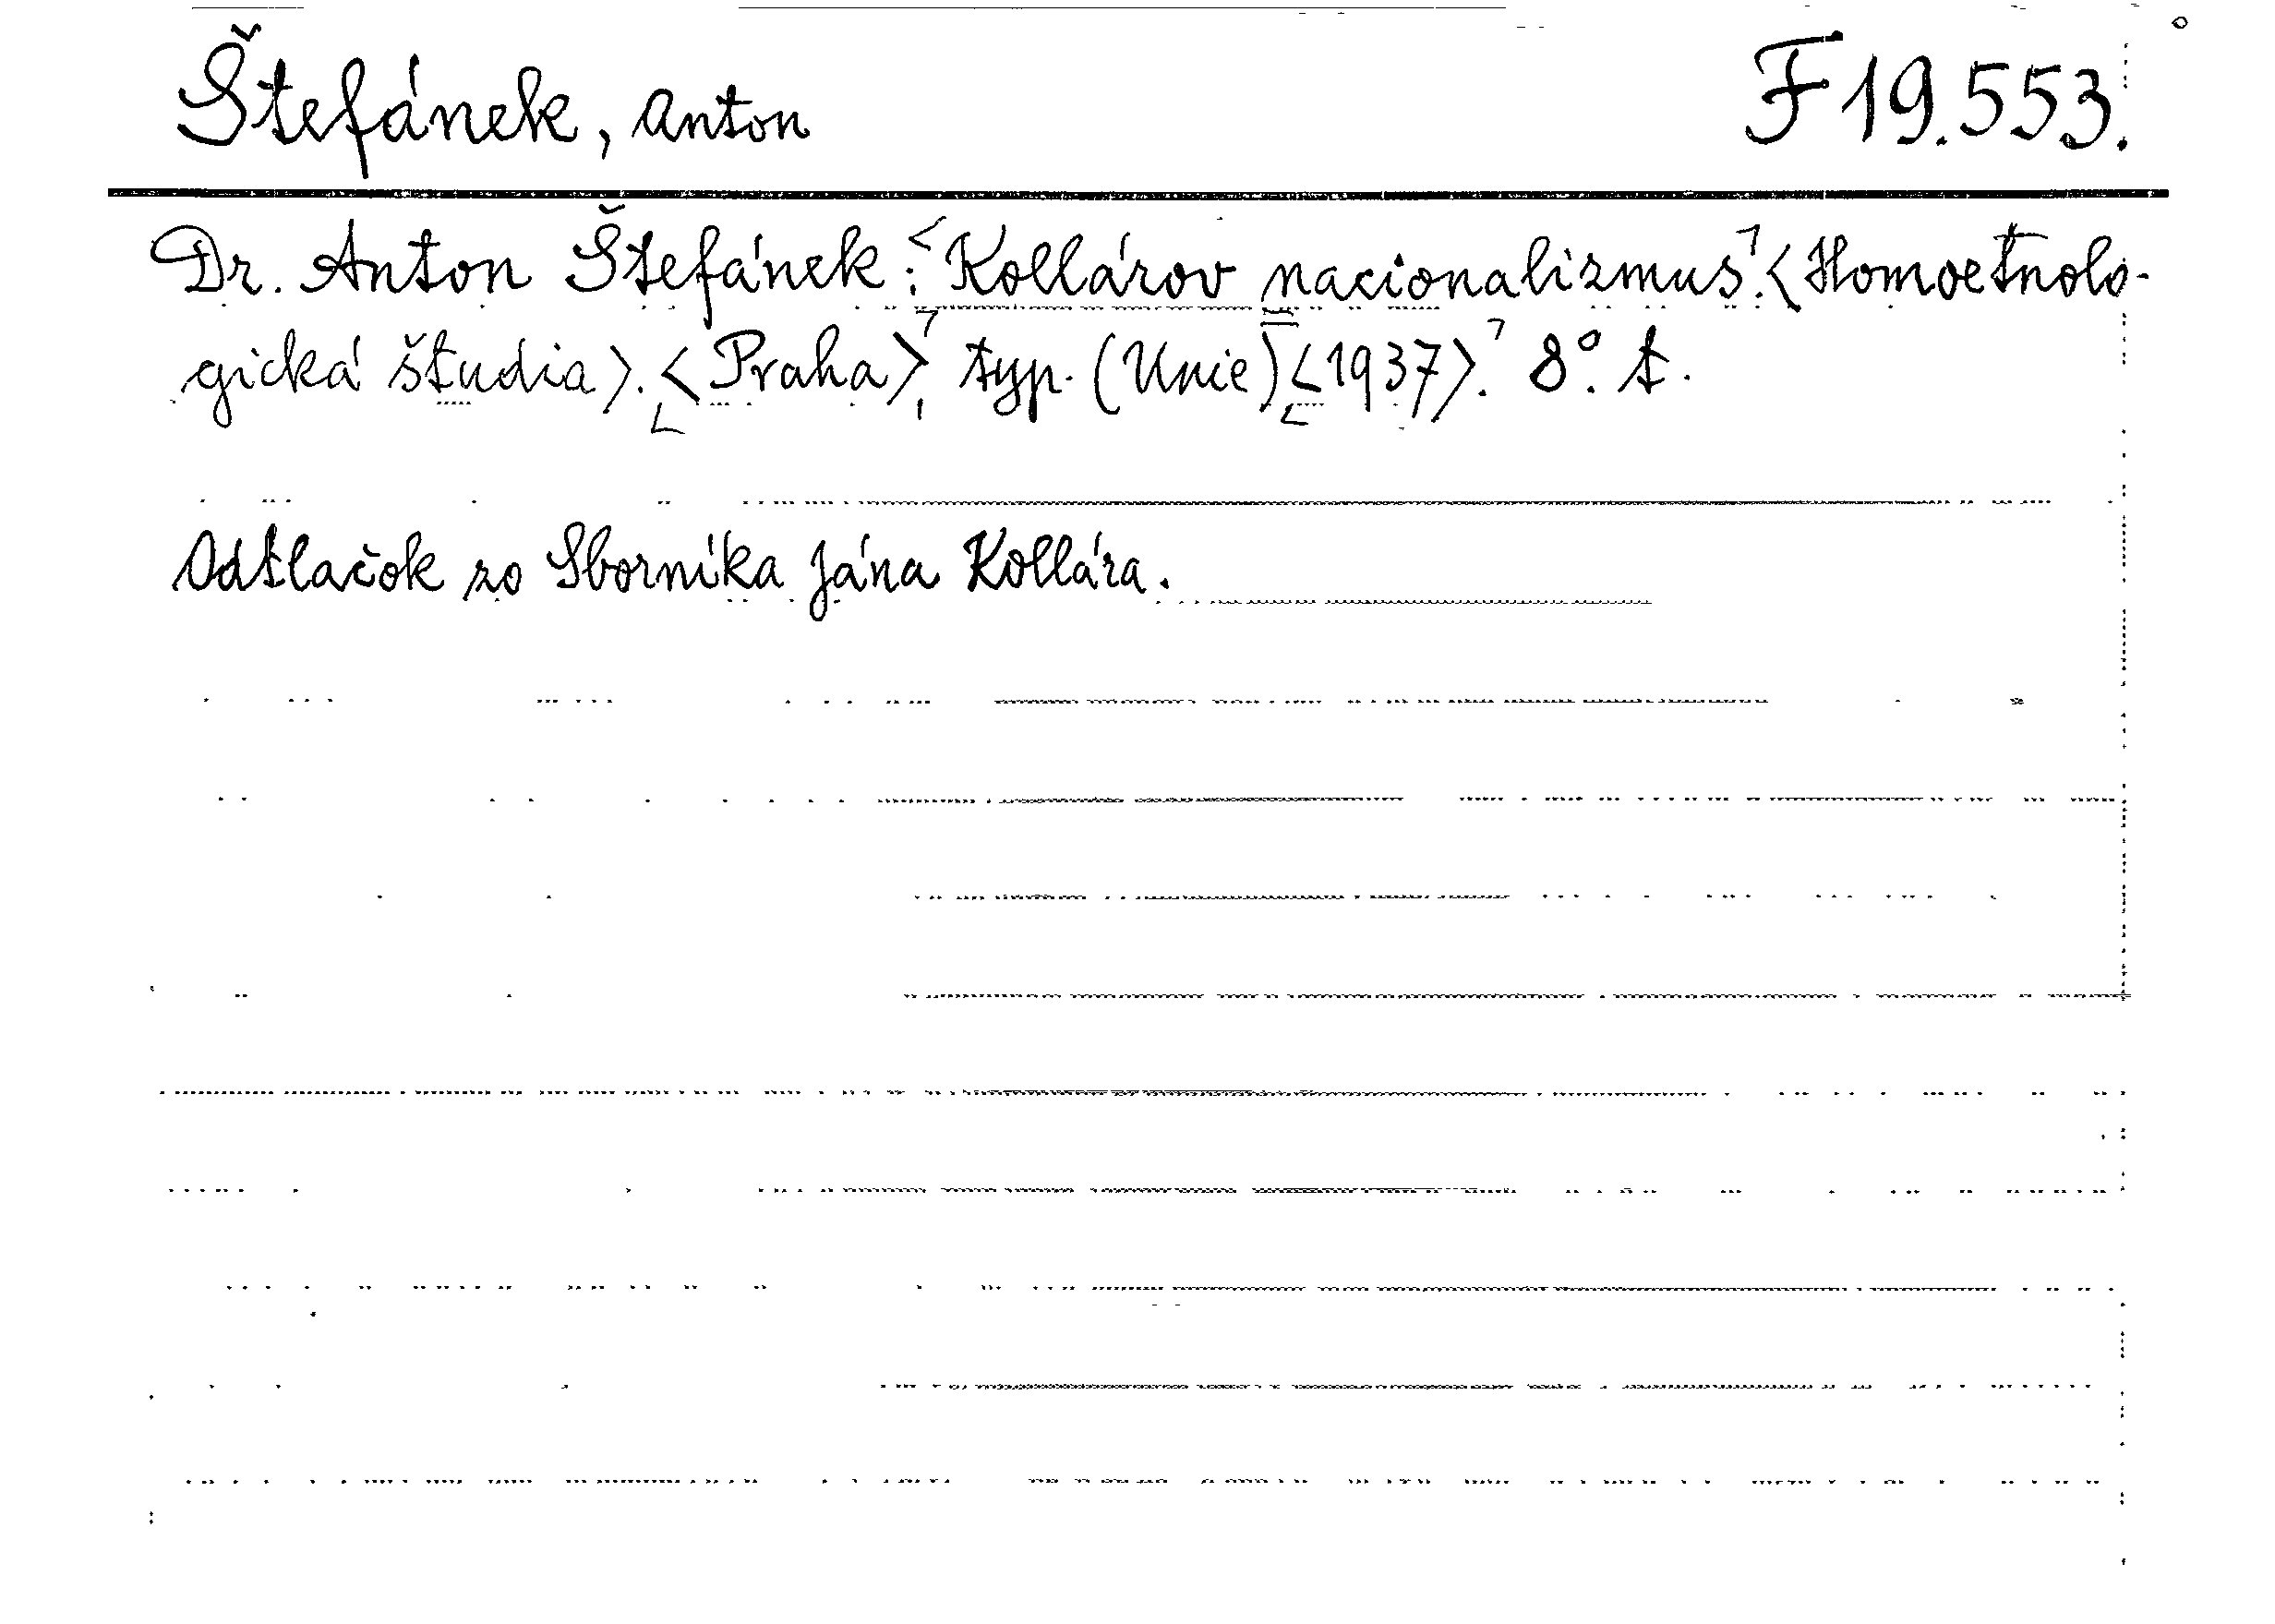 Štefánek, Anton F 19.553.
Dr. Anton Štefánek: Kollárov nacionalizmus. <Homoetnolo-
gická študia>. <Praha>, typ. (Unie) <1937>. 8°. t.
Odtlačok zo Sborníka Jána Kollára.